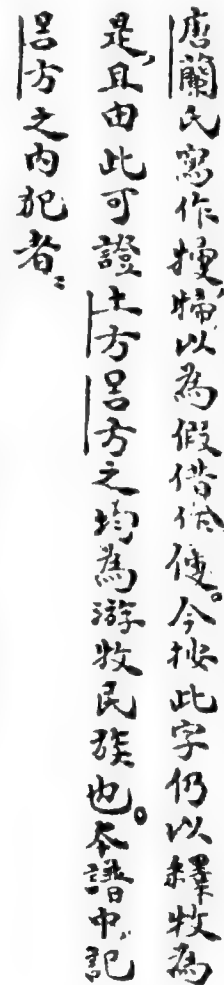 唐蘭氏寫作㨙,㷌以為假借作侵。今按此字仍以釋牧為
是,且由此可證土方𠮷方之均為游牧民族也。本譜中,記
𠮷方之內犯者: